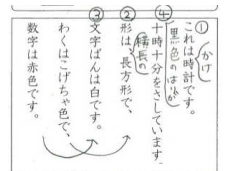 ①これはかけ時計です。
黒色のはりが
④十時十分をさしています。
②形は、横長の長方形で、
③文字ばんは白です。
わくはこげちゃ色で、
数字は赤色です。